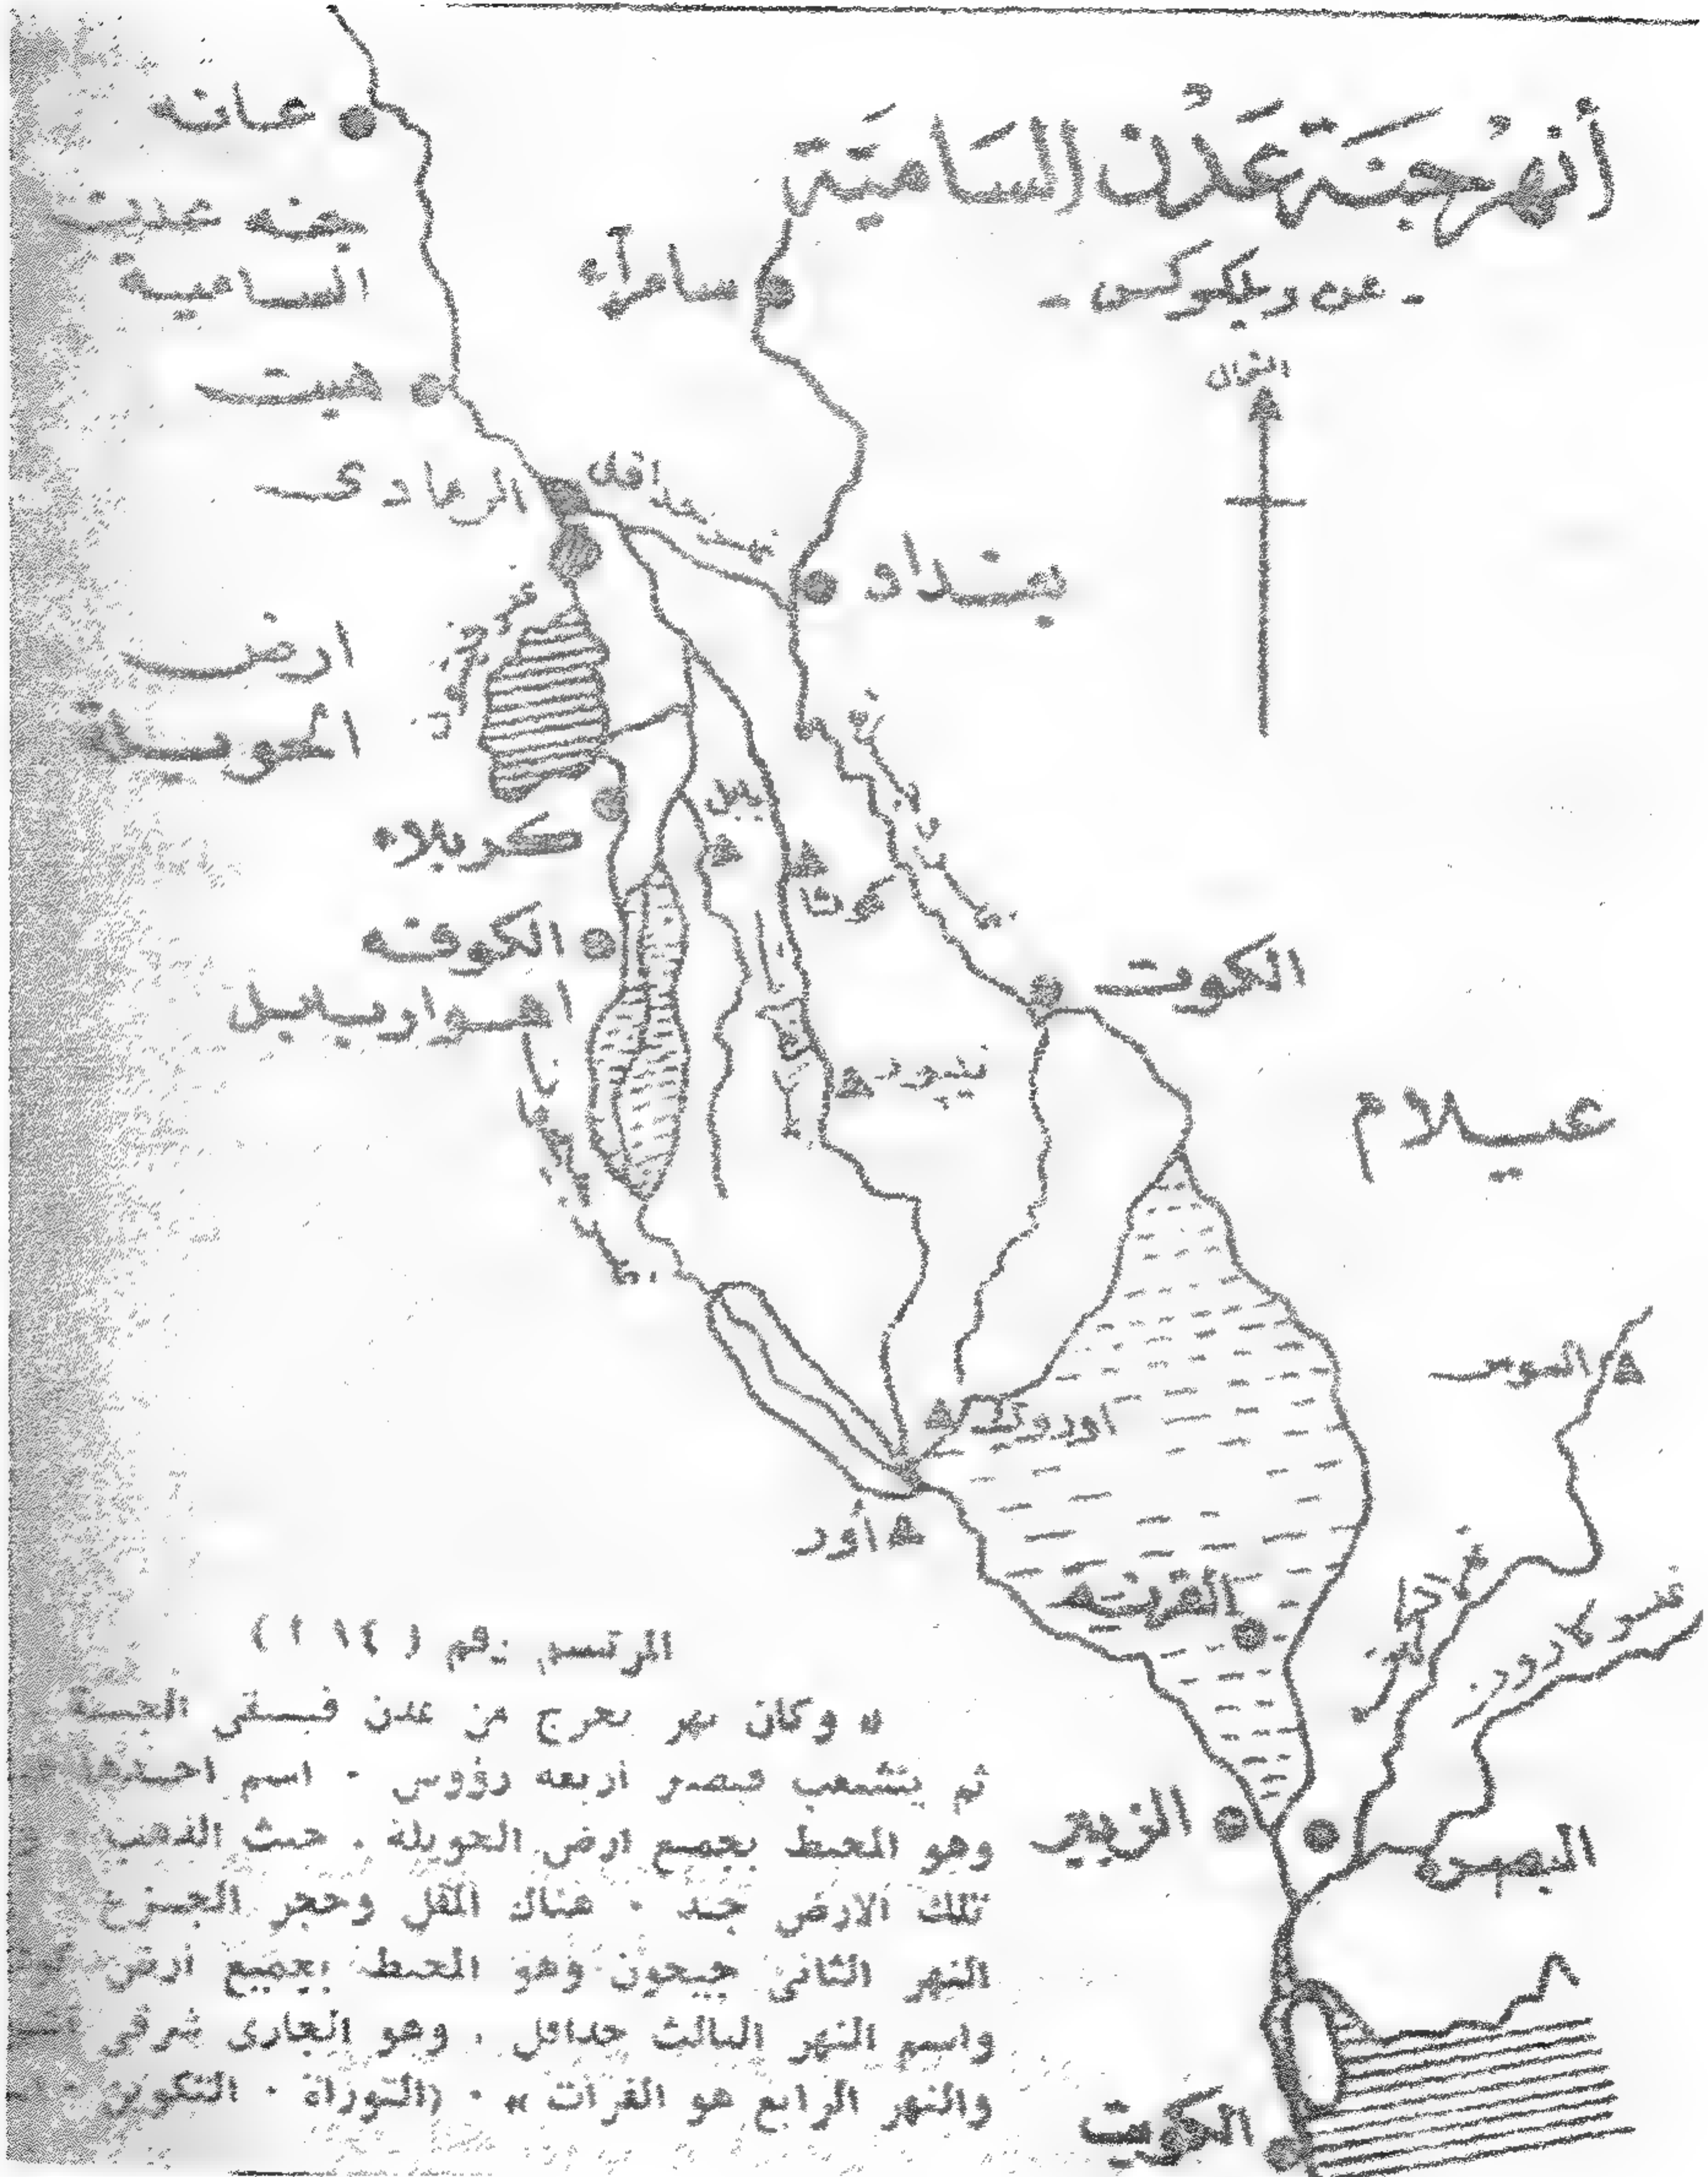 أنهر جنة عدْن السامية
- عن ويلكوكس -
الشمال
عانه
جنه عدن
السامية
سامراء
هيت
الرمادى
نهر حداقل
بغداد
ارض
الحويلة
كربلاء
بابل
كوثا
الكوفه
الكوت
اهوار بابل
نيبور
عيلام
السوس
اوروك
أور
القرنه
الزبير
البصره
الكويت
المرتسم رقم (١٤ أ)
« وكان نهر يخرج من عدن فيسقي الجنة
ثم يتشعب فيصير اربعه رؤوس . اسم احدها
وهو المحيط بجميع ارض الحويلة . حيث الذهب
تلك الارض جيد . هناك المقل وحجر الجزع
النهر الثانى جيحون وهو المحيط بجميع ارض
واسم النهر الثالث حداقل . وهو الجارى شرقي
والنهر الرابع هو الفرات » . (التوراة . التكوين